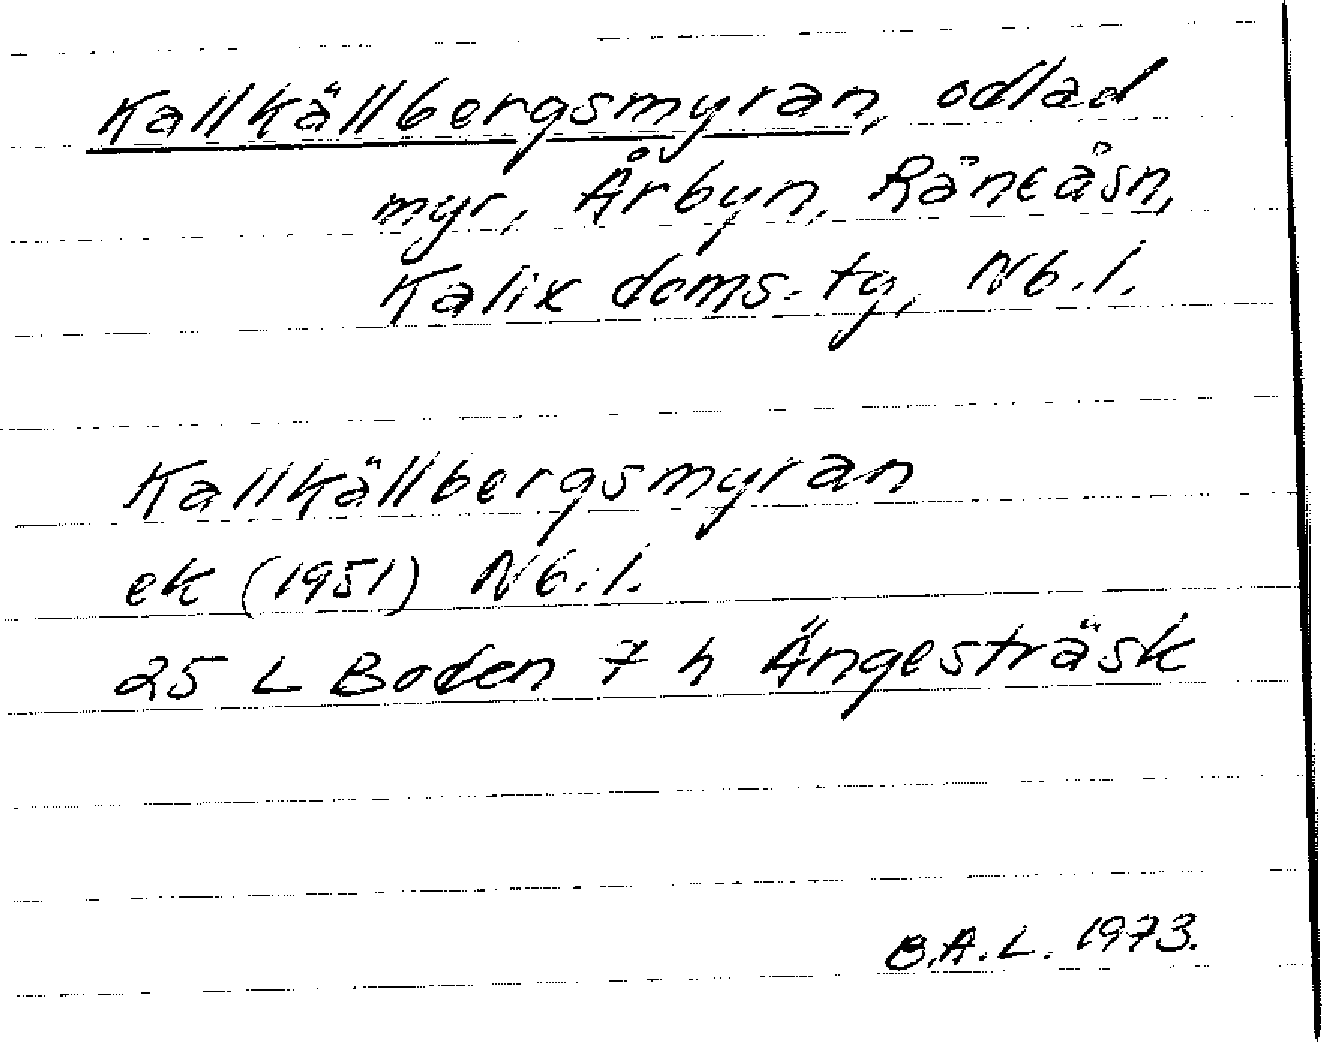 Kallkällbergsmyran, odlad
myr, Årbyn, Råneåsn,
Kalix doms. tg, Nb.l.
Kallkällbergsmyran
ek (1951) Nb.l.
25 L Boden 7 h Ängesträsk
B.A.L. 1973.